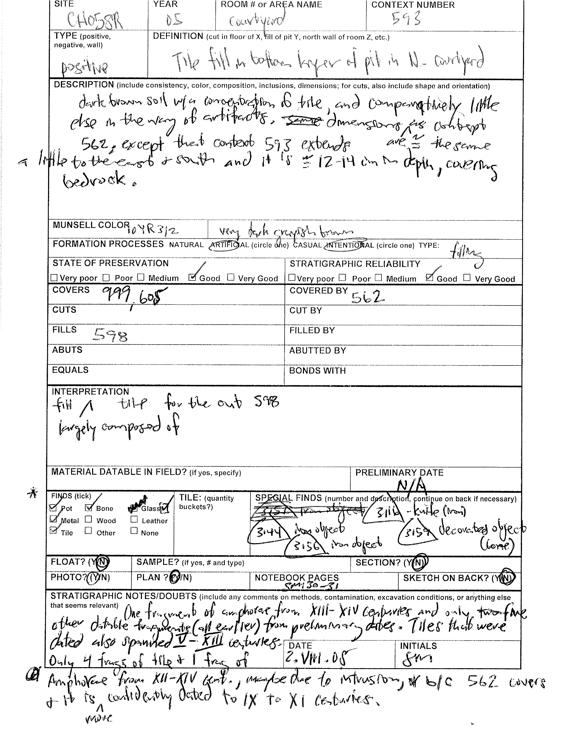 SITE YEAR ROOM # or AREA NAME CONTEXT NUMBER
CH05SR 05 courtyard 593
TYPE (positive, negative, wall) DEFINITION (cut in floor of X, fill of pit Y, north wall of room Z, etc.)
positive Tile fill in bottom layer of pit in N. courtyard
DESCRIPTION (include consistency, color, composition, inclusions, dimensions; for cuts, also include shape and orientation)
dark brown soil w/ a concentration of tile, and comparatively little
else in the way of artifacts. dimensions are ≈ the same as context
562, except that context 593 extends
a little to the east & south and it is ≈ 12-14 cm in depth, covering
bedrock.
MUNSELL COLOR 10YR3/2 very dark grayish brown
FORMATION PROCESSES NATURAL ARTIFICIAL (circle one) CASUAL INTENTIONAL (circle one) TYPE: filling
STATE OF PRESERVATION STRATIGRAPHIC RELIABILITY
Very poor Poor Medium Good Very Good Very poor Poor Medium Good Very Good
COVERS 999, 605 COVERED BY 562
CUTS CUT BY
FILLS 598 FILLED BY
ABUTS ABUTTED BY
EQUALS BONDS WITH
INTERPRETATION
fill ^ tile for the cut 598
largely composed of
MATERIAL DATABLE IN FIELD? (if yes, specify) PRELIMINARY DATE
N/A
* FINDS (tick) TILE: (quantity buckets?) SPECIAL FINDS (number and description, continue on back if necessary)
Pot Bone Glass 3116 - knife (iron)
Metal Wood Leather 3144 iron object 3159 decorated object
Tile Other None 3156 iron object (bone)
FLOAT? (Y/N) SAMPLE? (if yes, # and type) SECTION? (Y/N)
PHOTO? (Y/N) PLAN? (Y/N) NOTEBOOK PAGES SM 30-31 SKETCH ON BACK? (Y/N)
STRATIGRAPHIC NOTES/DOUBTS (include any comments on methods, contamination, excavation conditions, or anything else
that seems relevant) One fragment of amphorae from XIII-XIV centuries and only
other datable fragments (all earlier) from preliminary dates. Tiles that were
dated also spanned V - XIII centuries.
Only 4 frags of tile & 1 frag of DATE 2.VIII.05 INITIALS SM
Amphorae from XII-XIV cent., maybe due to intrusion, b/c 562 covers
& it is ^ confidently dated to IX to XI centuries.
more